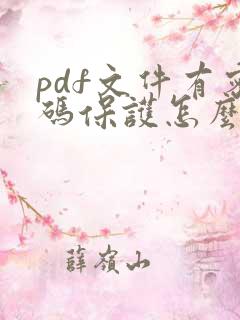 pdf文件有
碼保護怎麼
薛嶺山